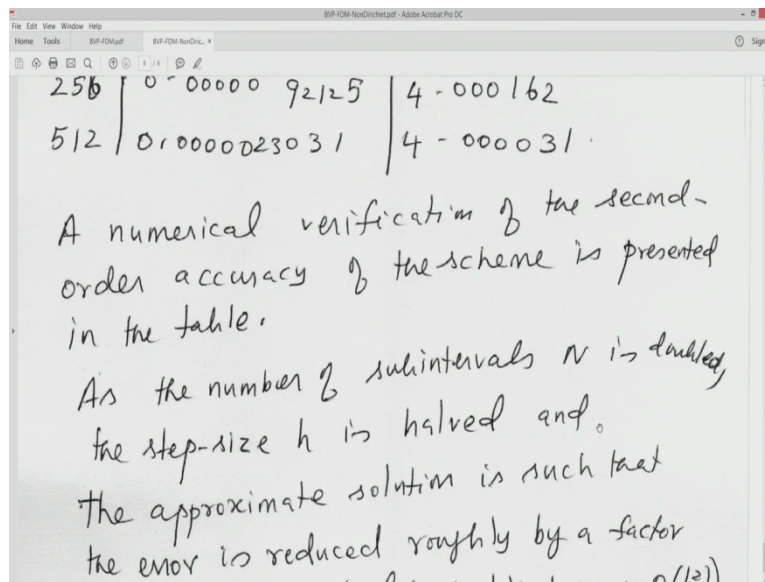 BVP-FDM-NonDirichlet.pdf - Adobe Acrobat Pro DC
File Edit View Window Help
Home Tools BVP-FDM.pdf BVP-FDM-NonDiric... × Sign
256 | 0.00000 92125 | 4.000162
512 | 0.0000023031 | 4.000031.
A numerical verification of the second-
order accuracy of the scheme is presented
in the table.
As the number of subintervals N is doubled,
the step-size h is halved and.
the approximate solution is such that
the error is reduced roughly by a factor